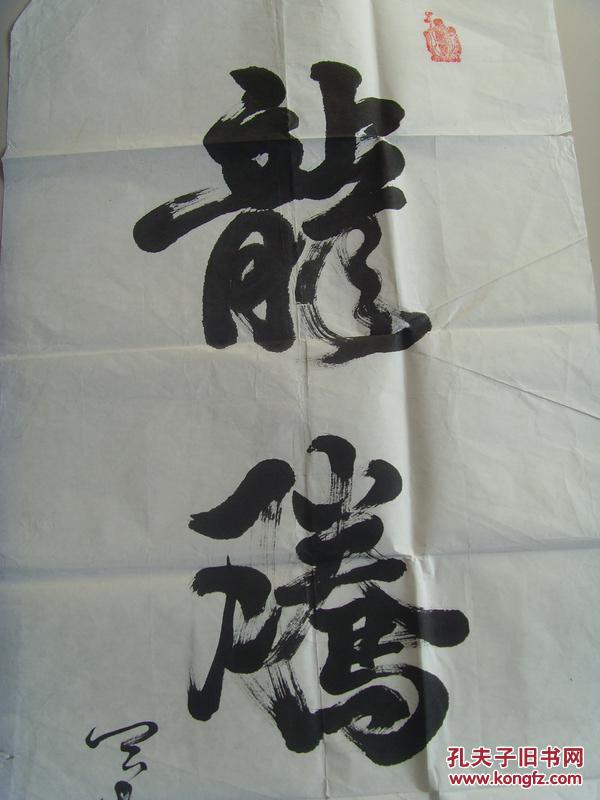 龍
騰
孔夫子旧书网
www.kongfz.com